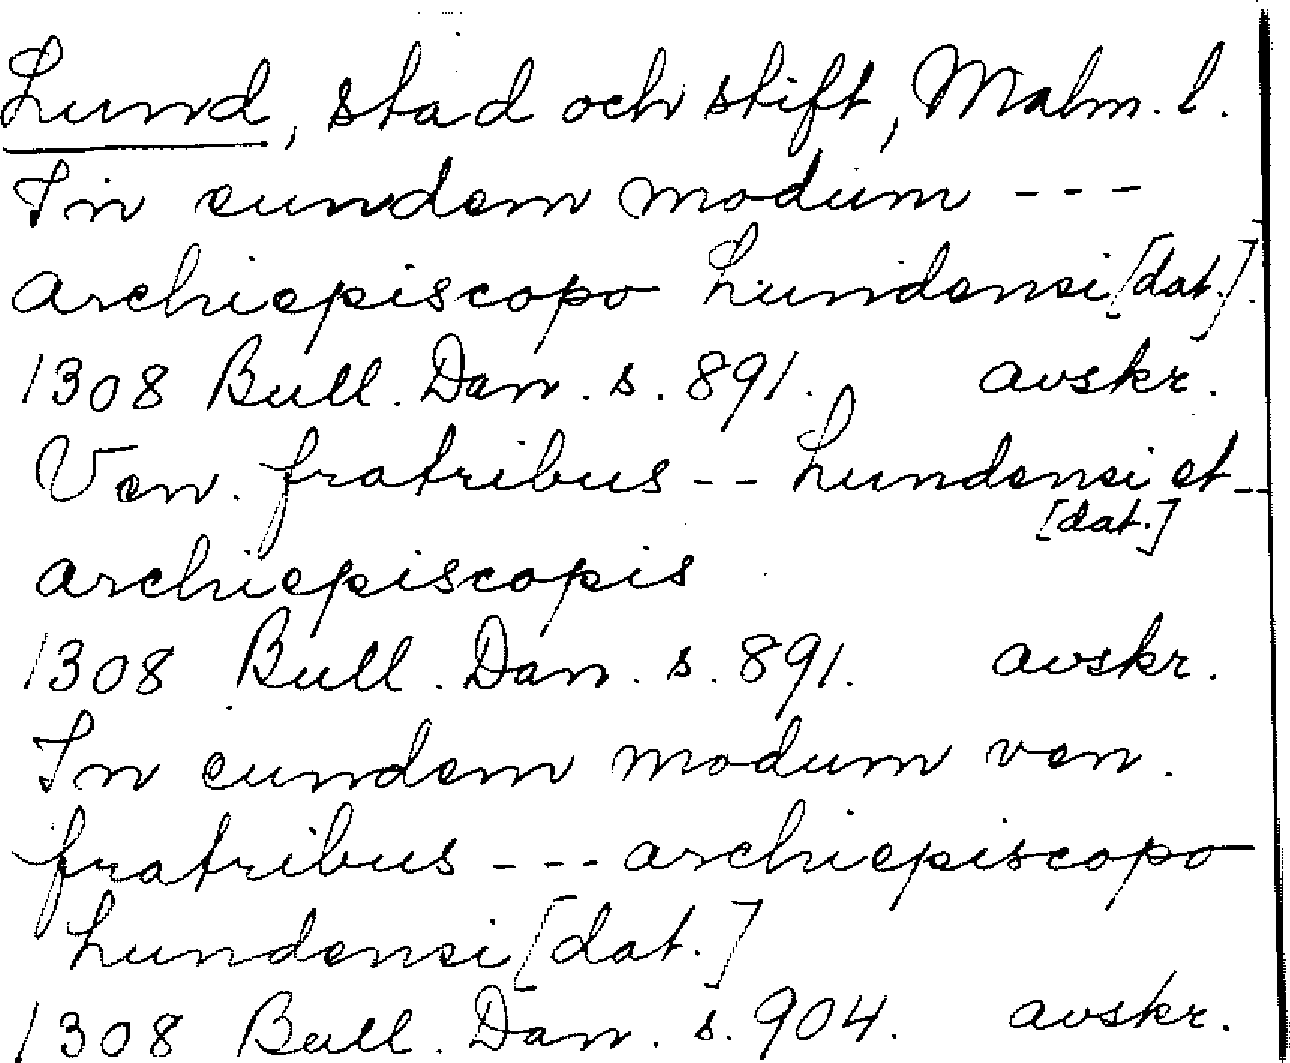 Lund, stad och stift, Malm. l.
In eundem modum ---
archiepiscopo Lundensi [dat.].
1308 Bull. Dan. s. 891. avskr.
Ven. fratribus -- Lundensi et --
[dat.]
archiepiscopis
1308 Bull. Dan. s. 891. avskr.
In eundem modum ven.
fratribus --- archiepiscopo
Lundensi [dat.]
1308 Bull. Dan. s. 904. avskr.